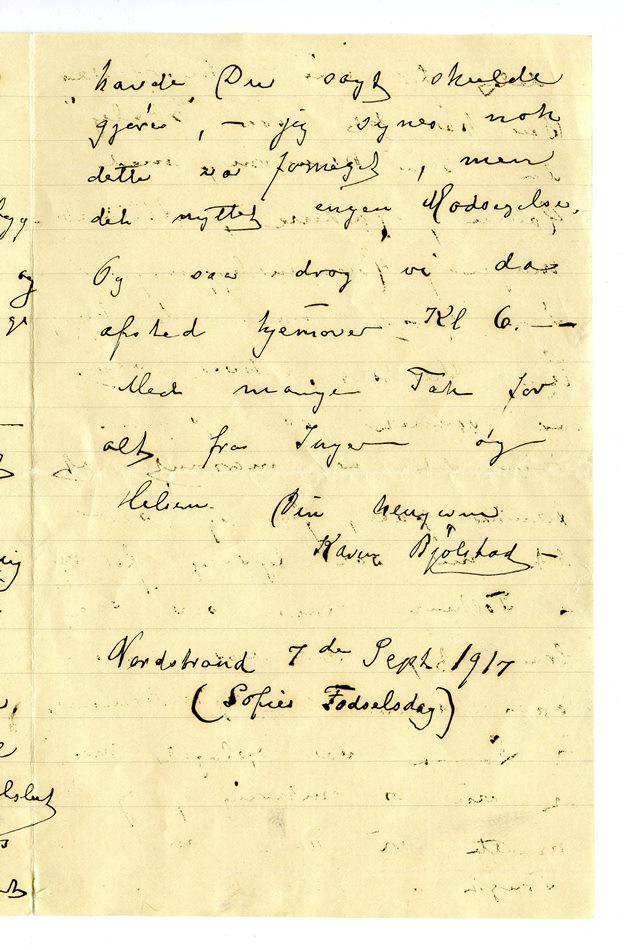 havde Du sagt skulde
gjøres", – jeg synes nok
dette va formeget, men
det nyttet ingen Modsigelse.
Og saa drog vi da
afsted hjemover Kl 6. – –
Med mange Tak for
alt fra Inger og
Hilsen Din hengivne
Karen Bjølstad –
Nordstrand 7 de Sept. 1917
(Sofies Fødselsdag)